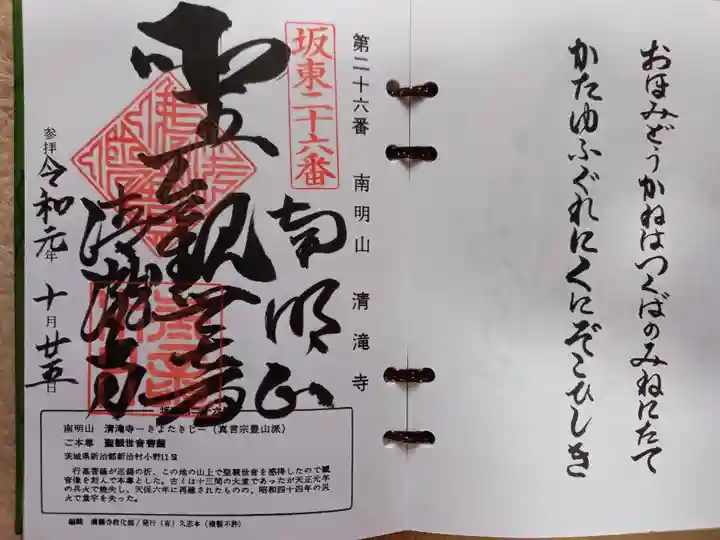 おほみどうかねはつくばのみねにたて
かたゆふぐれにくにぞこひしき
第二十六番 南明山 清滝寺
坂東二十六番
南明山
聖観世音
清瀧寺
参拝 令和元年 十月廿五日
南明山 清滝寺─きよたきじ─(真言宗豊山派)
ご本尊 聖観世音菩薩
茨城県新治郡新治村小野11
行基菩薩が巡錫の折、この地の山上で聖観世音を感得したので観
音像を刻んで本尊とした。古くは十三間の大堂であったが天正元年
の兵火で焼失し、天保六年に再建されたものの、昭和四十四年の災
火で堂宇を失った。
編輯 満願寺教化部/発行(有)久志本(複製不許)